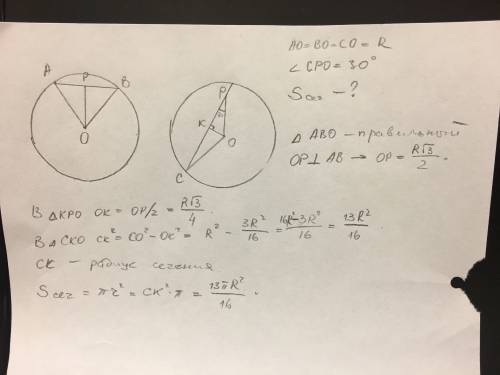 AO=BO=CO= R
∠ CPO = 30°
Sсеч – ?
A P B
O
P
K
O
C
△ ABO – правильный
OP⊥ AB → OP = R√3/2 .
В △KPO OK = OP/2 = R√3/4 .
В △ CKO CK² = CO² – OK² = R² – 3R²/16 = 16R²–3R²/16 = 13R²/16 .
CK – радиус сечения
Sсеч = πr² = CK²·π = 13πR²/16 .